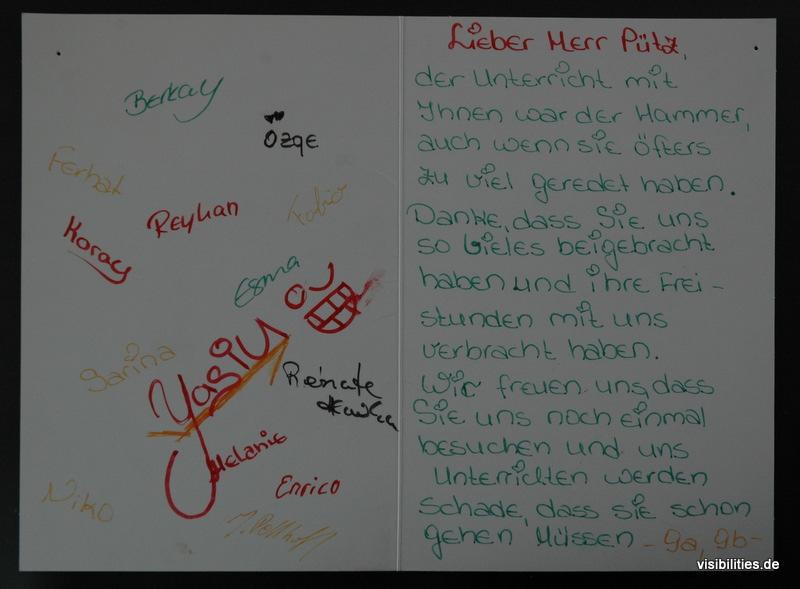 Berkay
Özge
Ferhat
Reyhan
Fabio
Koray
Esma
Sarina
Yasin
Renate
Melanie
Enrico
Niko
Lieber Herr Pütz,
der Unterricht mit
Ihnen war der Hammer,
auch wenn sie öfters
zu viel geredet haben.
Danke, dass Sie uns
so vieles beigebracht
haben und ihre Frei-
stunden mit uns
verbracht haben.
Wir freuen uns, dass
Sie uns noch einmal
besuchen und uns
Unterrichten werden
Schade, dass sie schon
gehen Müssen - 9a, 9b -
visibilities.de